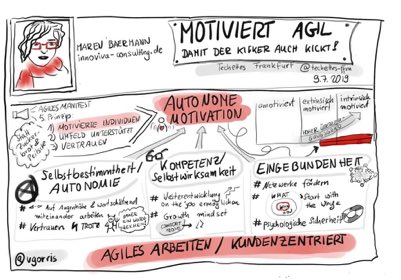 MAREN BAERMANN
innoviva-consulting.de
MOTIVIERT AGIL
DAMIT DER KICKER AUCH KICKT!
Techettes Frankfurt @techettes-ffm
9.7.2019
AGILES MANIFEST
5. Prinzip
1) MOTIVIERTE INDIVIDUEN
2) UMFELD UNTERSTÜTZT
3) VERTRAUEN
AUTONOME
MOTIVATION
amotiviert
extrinsisch
motiviert
intrinsisch
motiviert
Selbstbestimmtheit/
AUTONOMIE
# Auf Augenhöhe & wertschätzend
miteinander arbeiten
# Vertrauen
KOMPETENZ/
Selbstwirksamkeit
# Weiterentwicklung
on the job ermöglichen
# Growth mindset
EINGEBUNDENHEIT
# Netzwerke fördern
# Start with
Why
# psychologische Sicherheit
@vgorris
AGILES ARBEITEN / KUNDENZENTRIERT